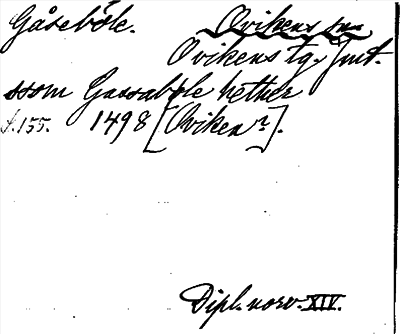 Gåseböle. Ovikens sn
Ovikens tg. Jmt.
ssom Gassabøle hether
s. 155. 1498 [Oviken?].
Dipl. norv. XIV.